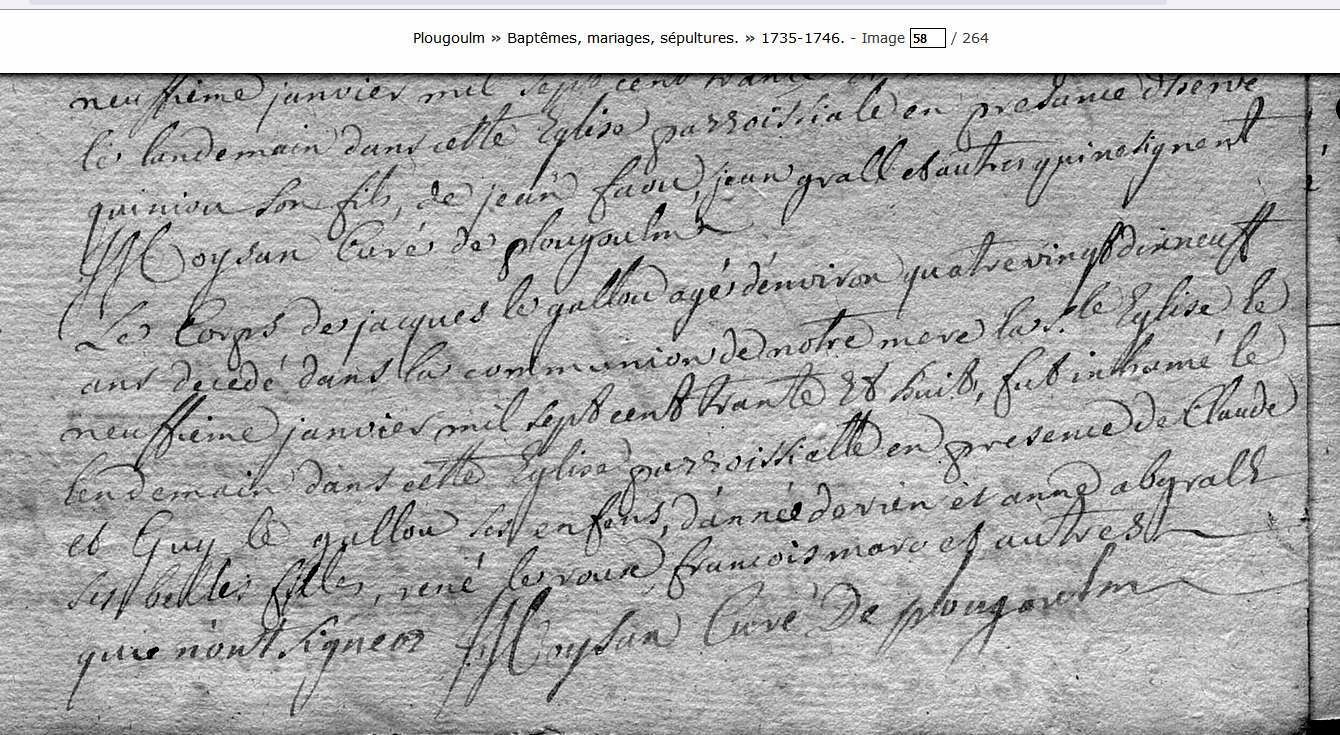 Plougoulm » Baptêmes, mariages, sépultures. » 1735-1746. - Image 58 / 264
neuffieme janvier mil sept cent trante
le landemain dans cette Eglise parroissiale en presance d'herve
quiniou son fils, de jean faou, jean grall et autres qui ne signent
Moysan Curé de plougoulm
Le Corps de jacques le gallou agé d'environ quatre vingt dix neuff
ans decedé dans la communion de notre mere la s.te Eglise le
neuffieme janvier mil sept cent trante et huit, fut inhumé le
lendemain dans cette Eglise parroissialle en presence de Claude
et Guy le gallou ses enfens, d'annee dorien et anne abgrall
ses belles filles, rené le roux francois marc et autres
qui n'ont signer Moysan Curé De plougoulm